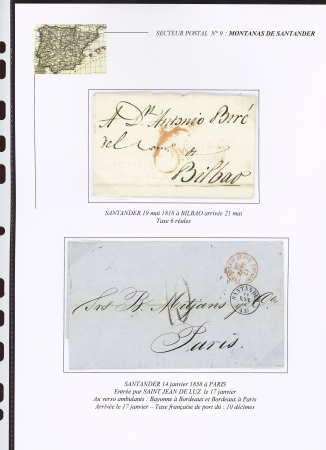 SECTEUR POSTAL N° 9 : MONTANAS DE SANTANDER
A Dn Antonio Boré
del Com.° &
Bilbao
SANTANDER 19 mai 1818 à BILBAO arrivée 21 mai
Taxe 6 réales
SANTANDER
Srs B. Mitjans & Ca
Paris.
SANTANDER 14 janvier 1858 à PARIS
Entrée par SAINT JEAN DE LUZ le 17 janvier
Au verso ambulants : Bayonne à Bordeaux et Bordeaux à Paris
Arrivée le 17 janvier – Taxe française de port dû : 10 décimes